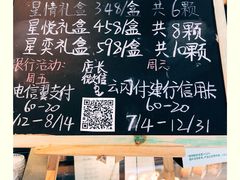 星情礼盒 348/盒 共6颗
星悦礼盒 458/盒 共8颗
星奕礼盒 598/盒 共10颗
银行活动: 店长 周六
周五 微信 云闪付建行信用卡
电信翼支付 60-20
60-20 7/4-12/31
/12-8/14